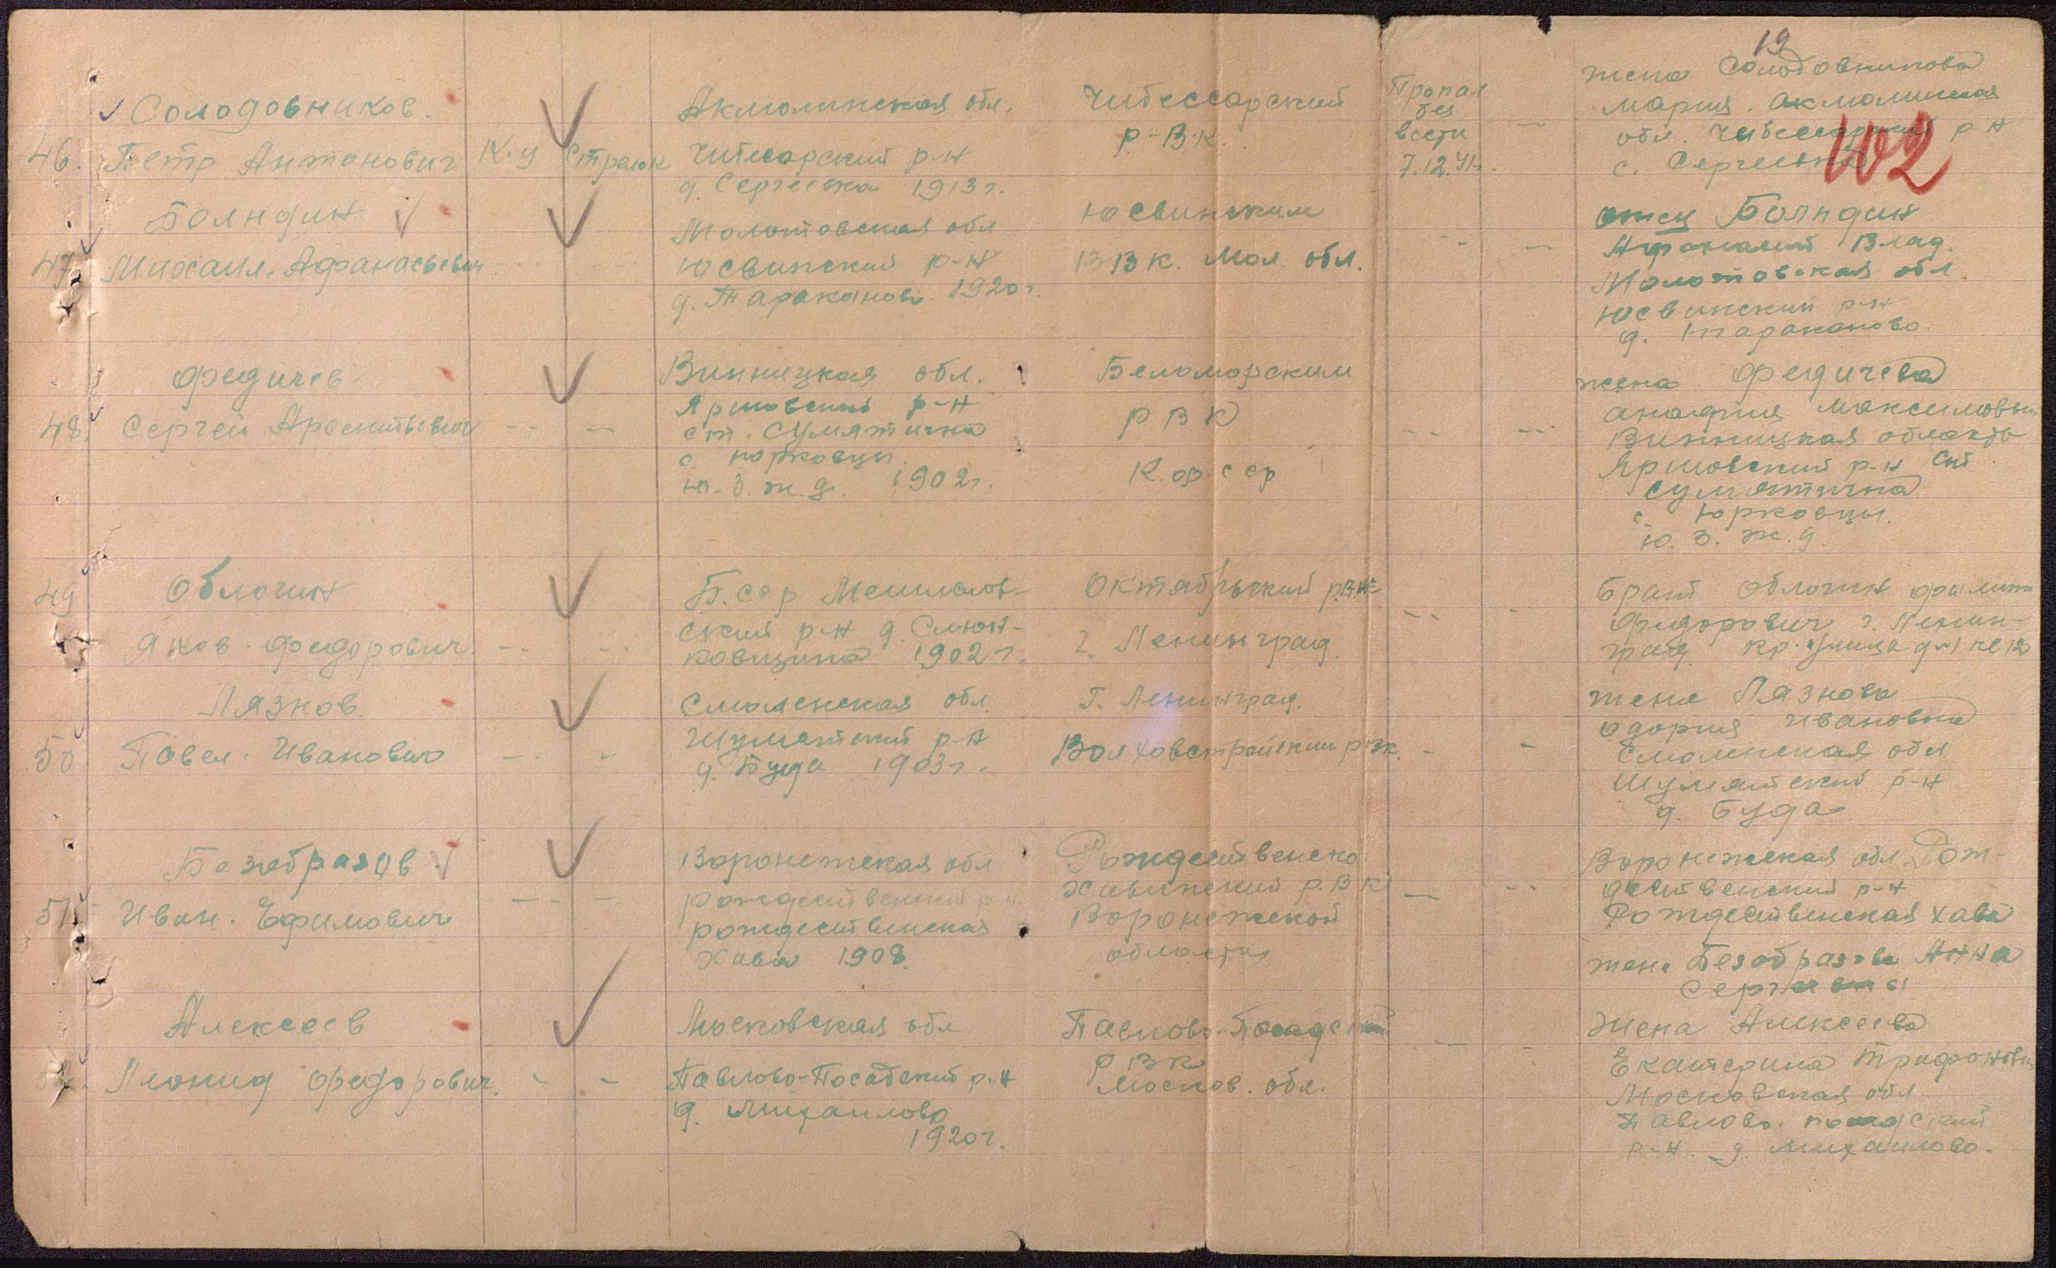 19
102
Солодовников
46. Петр Антонович
К-ц
Стрелок
Акмолинская обл.
Чибесарский р-н
д. Сергеевка 1913 г.
Чибессарский
Р-В-К.
Пропал
без
вести
7.12.41г.
жена Солодовникова
Мария. Акмолинская
обл. Чибессарский р-н
с. Сергеевка
Болндин
47. Михаил. Афанасьевич
Молотовская обл
Юсвинский р-н
д. Тараканово. 1920 г.
Юсвинским
РВК. Мол. обл.
отец Болндин
Афонасий Влад.
Молотовская обл.
Юсвинский р-н
д. Тараканово.
Федичев
48. Сергей Арсентьевич
Винницкая обл.
Яршовский р-н
ст. Сумятична
с. Юрковцы.
Ю.З.ж.д. 1902 г.
Беломорским
РВК
К.ф.сср
жена Федичева
Анафия Максимовна
Винницкая область
Яршовский р-н ст.
Сумятична
с. Юрковцы.
Ю.З.ж.д.
49 Облогин
Яков. Федорович
Б.сср Мстислов-
ский р-н д. Смон-
ковщина 1902 г.
Октябрьский рвк
г. Ленинград
Брат Облогин Филипп
Федорович г. Ленин-
град. Кр. улица д
Лязнов
50 Павел. Иванович
Смоленская обл.
Шумятский р-н
д. Буда 1903 г.
Г. Ленинград.
Волховстройский рвк.
жена Лязнова
Ивановна
Смоленская обл
Шумятский р-н
д. Буда
Безобразов
51. Иван. Ефимович
Воронежская обл
Рождественский р-н
Рождественская
Хава 1908.
Рождественско
Хавинский Р.В.К
Воронежской
области
Воронежская обл. Рож-
дественский р-н
Рождественская Хава
жена Безобразова Анна
Сергеевна
Алексеев
Леонид Федорович.
Московская обл
Павлово-Посадский р-н
д. Михайлово
1920 г.
Павлово-Посадский
РВК
Москов. обл.
Жена Алексеева
Екатерина Трифоновна
Московская обл
Павлово. посадский
р-н. д. Михайлово.